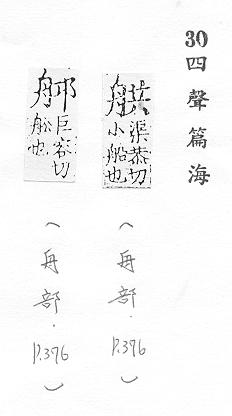 30四聲篇海
舼 渠恭切
小船也
（舟部．P.376）
巨容切
船也
（舟部．P.376）